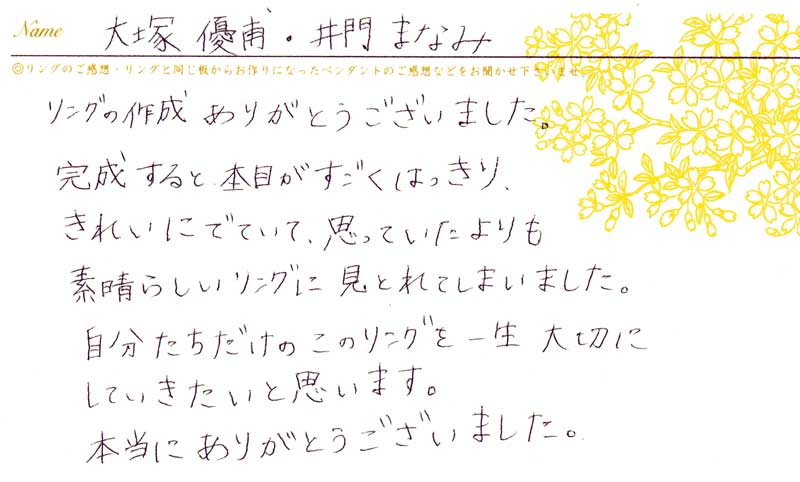 Name 大塚 優甫・井門 まなみ
◎リングのご感想・リングと同じ板からお作りになったペンダントのご感想などをお聞かせ下さいませ。
リングの作成 ありがとうございました。
完成すると本目がすごくはっきり、
きれいにでていて、思っていたよりも
素晴らしいリングに見とれてしまいました。
自分たちだけのこのリングを一生 大切に
していきたいと思います。
本当にありがとうございました。